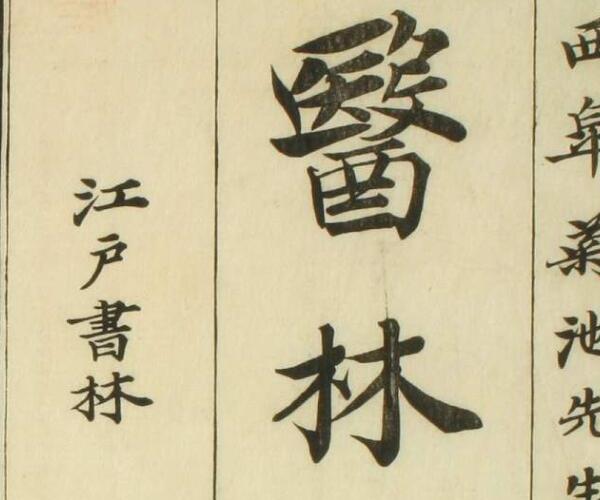 西皐菊池先生
醫林
江戸書林